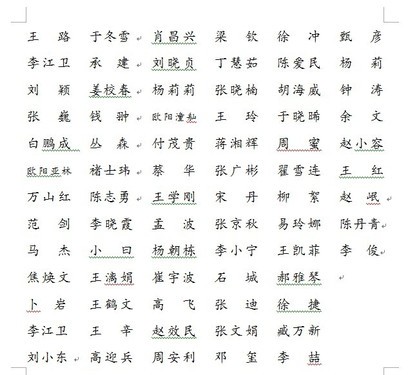 王 路 于冬雪 肖昌兴 梁 钦 徐 冲 甄 彦
李江卫 承 建 刘晓贞 丁慧茹 陈爱民 杨 莉
刘 颖 姜校春 杨莉莉 张晓楠 胡海威 钟 涛
张 巍 钱 翀 欧阳潼 王 玲 于晓晞 余 文
白鹏成 丛 森 付茂贵 蒋湘辉 周 蜜 赵小容
欧阳亚林 褚士玮 蔡 华 张广彬 翟雪连 王 红
万山红 陈志勇 王学刚 宋 丹 柳 絮 赵 岷
范 剑 李晓霞 孟 波 张京秋 易玲娜 陈丹青
马 杰 小 曰 杨朝栋 李小宁 王凯菲 李 俊
焦焕文 王漓娟 崔宇波 石 城 郝雅琴
卜 岩 王鹤文 高 飞 张 迪 徐 捷
李江卫 王 辛 赵效民 张文娟 臧万新
刘小东 高迎兵 周安利 邓 玺 李 喆